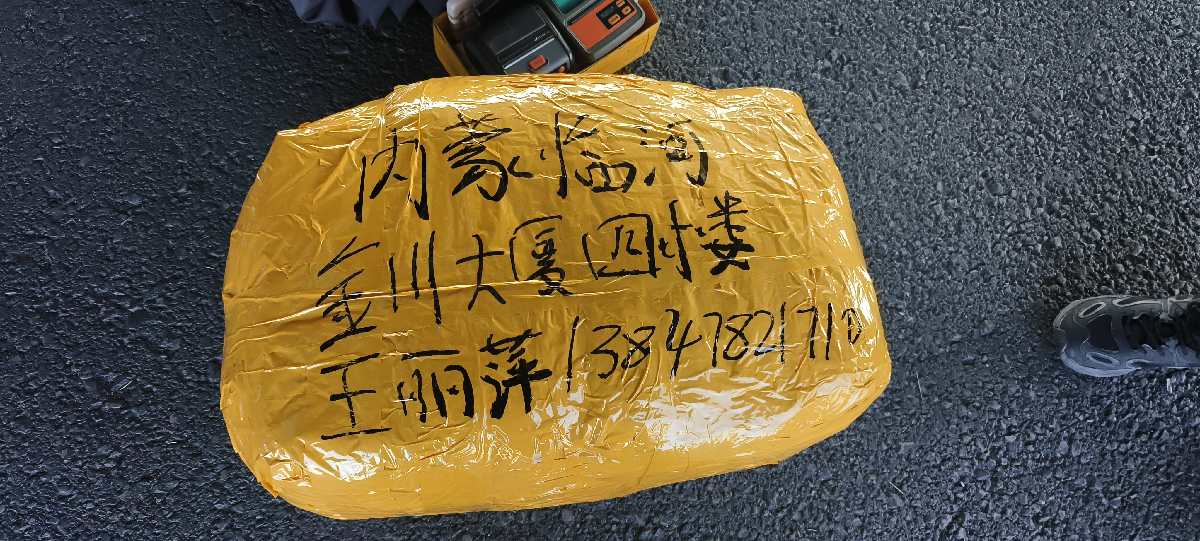 内蒙临河
金川大厦四楼
王丽萍13847821710